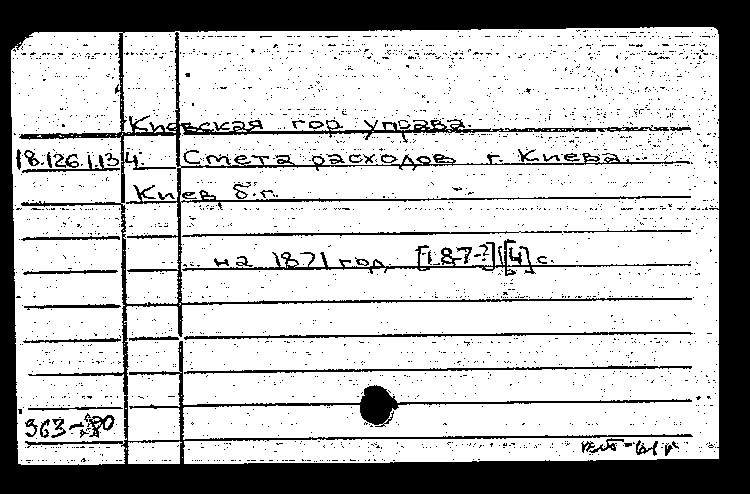 Киевская гор управа.
18.126.1.134. Смета расходов г. Киева...
Киев, б.г.
на 1871 год. [187-?] [4] с.
363-